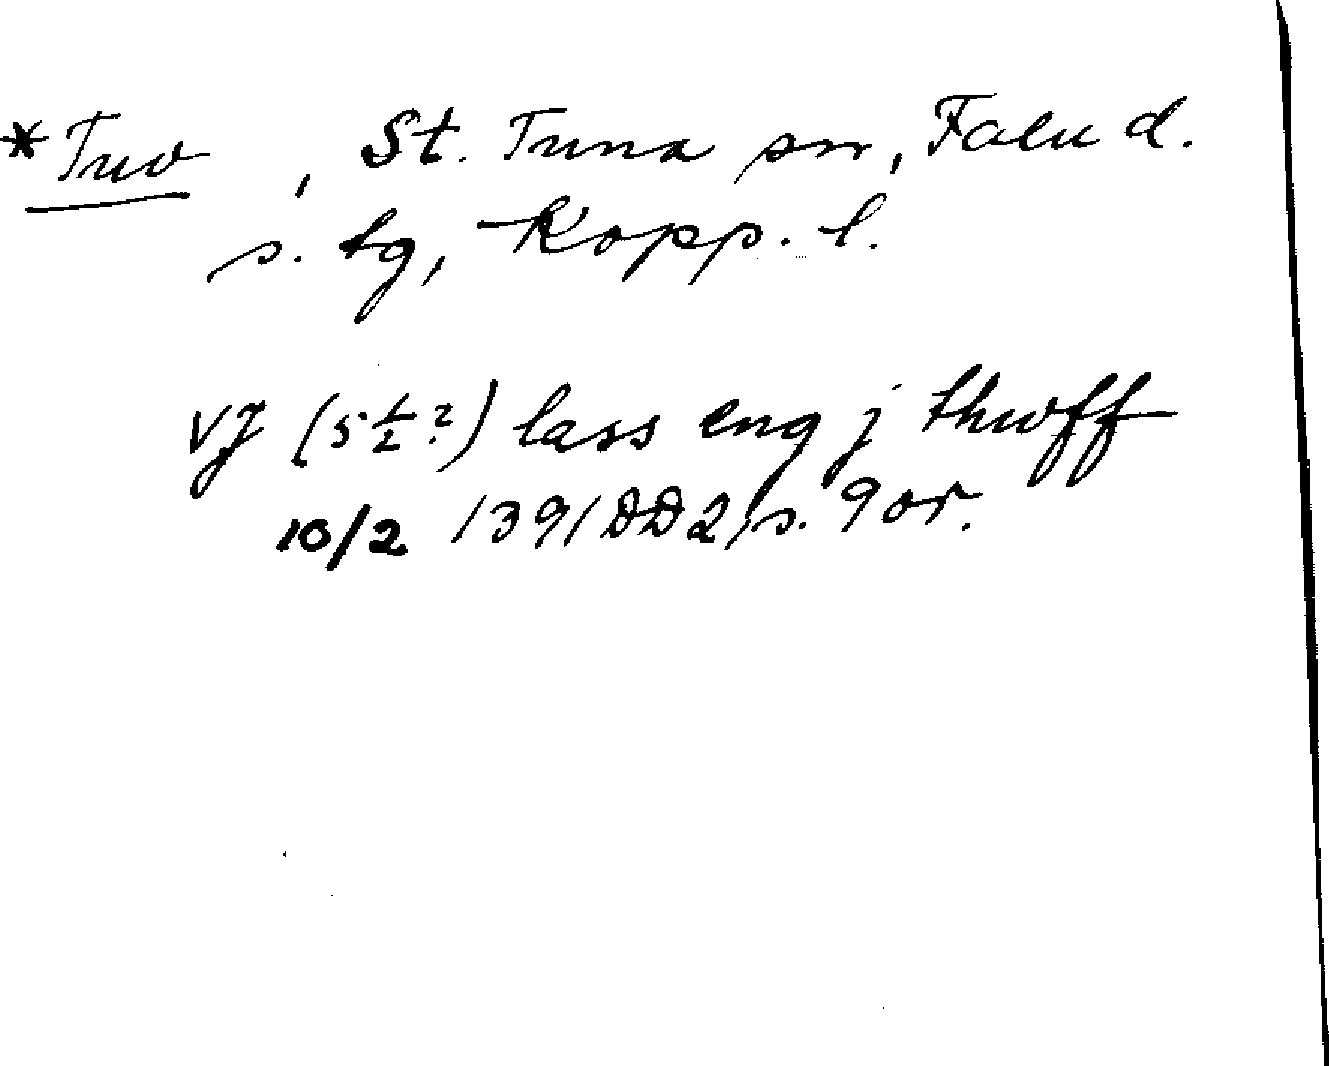 *Tuv , St. Tuna sn, Falu d.
s. tg, Kopp. l.
VJ (5 1/2?) lass eng j thwff
10/2 1391 DD2, s. 9 or.